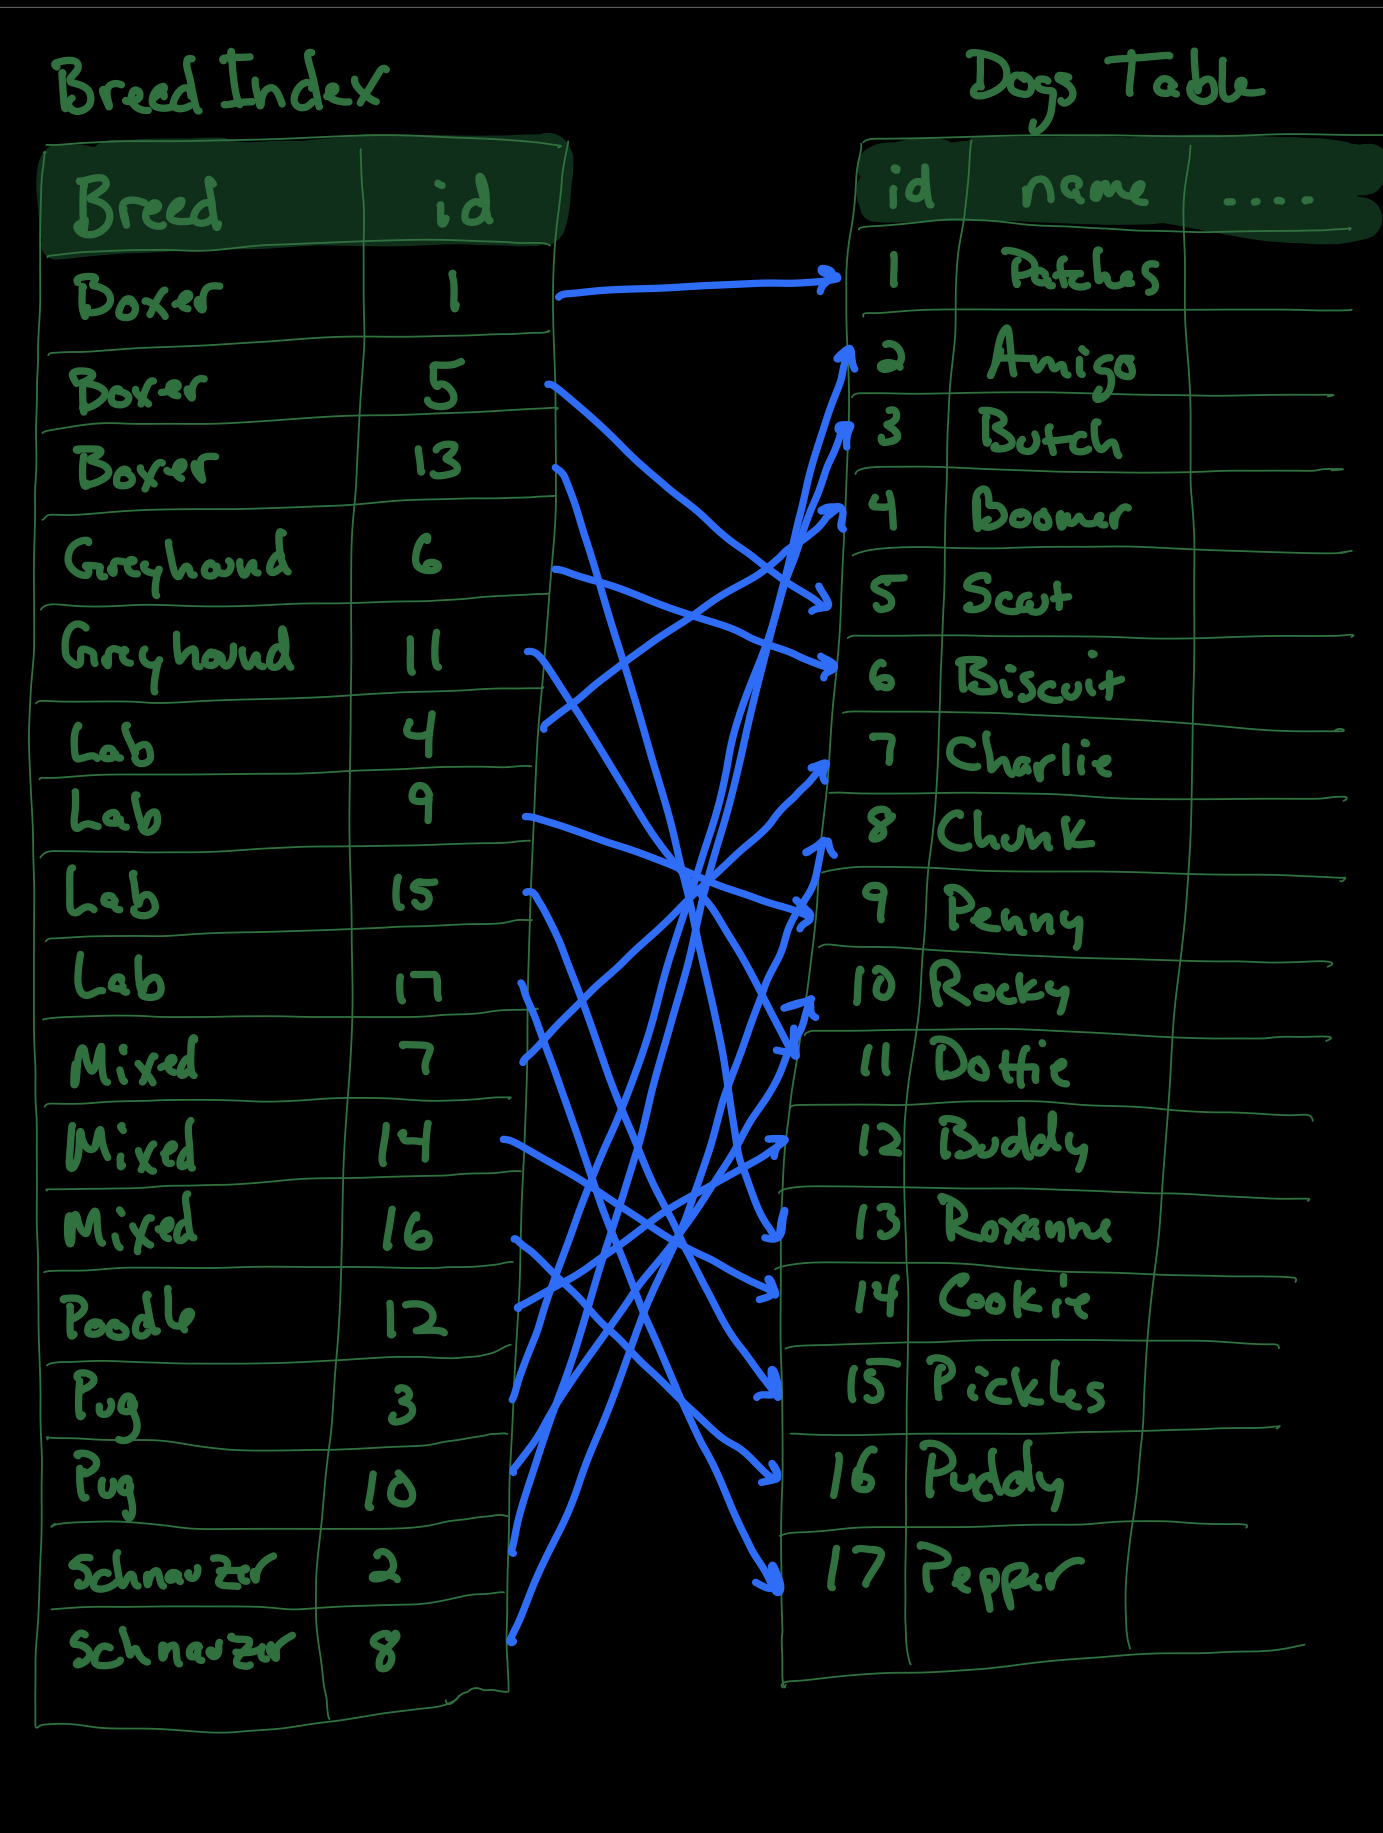 Breed Index
Breed id
Boxer 1
Boxer 5
Boxer 13
Greyhound 6
Greyhound 11
Lab 4
Lab 9
Lab 15
Lab 17
Mixed 7
Mixed 14
Mixed 16
Poodle 12
Pug 3
Pug 10
Schnauzer 2
Schnauzer 8
Dogs Table
id name .....
1 Patches
2 Amigo
3 Butch
4 Boomer
5 Scout
6 Biscuit
7 Charlie
8 Chunk
9 Penny
10 Rocky
11 Dottie
12 Buddy
13 Roxanne
14 Cookie
15 Pickles
16 Puddy
17 Pepper